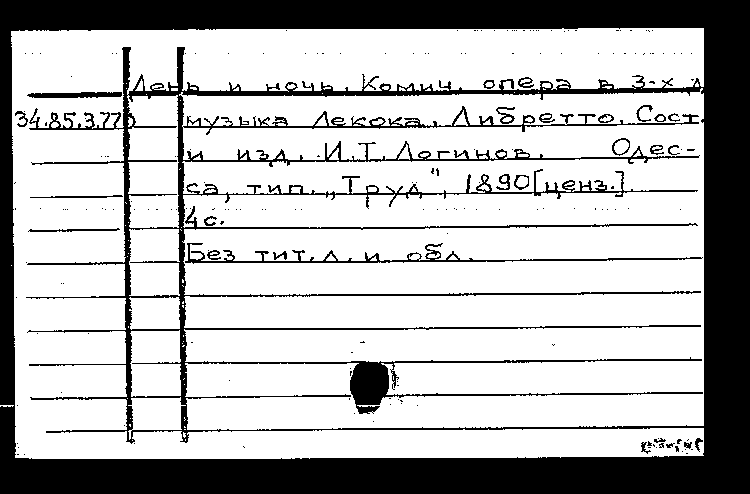 День и ночь. Комич. опера в 3-х д
34.85.3.770 музыка Лекока. Либретто. Сост.
и изд. И.Т. Логинов. Одес-
са, тип. „Труд", 1890 [ценз.]
4 с.
Без тит. л. и обл.